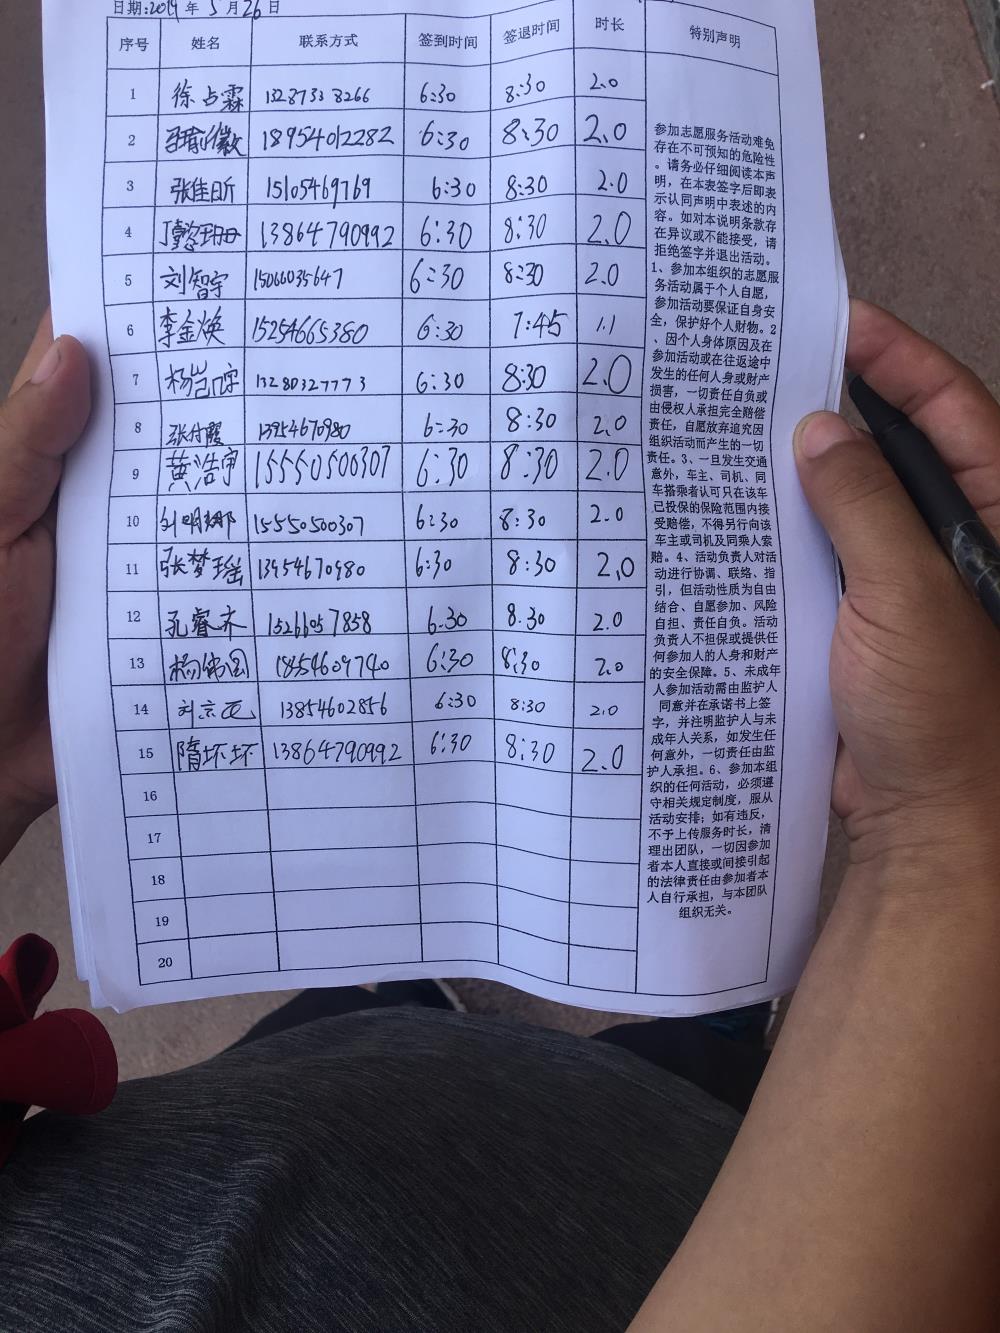 日期:2019 年 5 月 26 日
序号 姓名 联系方式 签到时间 签退时间 时长 特别声明
1 徐占霖 13287338266 6:30 8:30 2.0
2 18954012282 6:30 8:30 2.0
3 张佳昕 15105469769 6:30 8:30 2.0
4 13864790992 6:30 8:30 2.0
5 刘智宇 15066035647 6:30 8:30 2.0
6 李金焕 15254665380 6:30 7:45 1.1
7 杨 13280327773 6:30 8:30 2.0
8 张付霞 13954670980 6:30 8:30 2.0
9 黄浩宇 15550500307 6:30 8:30 2.0
10 刘明娜 15550500307 6:30 8:30 2.0
11 张梦瑶 13954670980 6:30 8:30 2.0
12 孔睿齐 15266057858 6.30 8.30 2.0
13 杨伟国 18954609740 6:30 8:30 2.0
14 刘京 13854602856 6:30 8:30 2.0
15 隋坏坏 13864790992 6:30 8:30 2.0
16
17
18
19
20
参加志愿服务活动难免
存在不可预知的危险性
。请务必仔细阅读本声
明，在本表签字后即表
示认同声明中表述的内
容。如对本说明条款存
在异议或不能接受，请
拒绝签字并退出活动。
1、参加本组织的志愿服
务活动属于个人自愿，
参加活动要保证自身安
全，保护好个人财物。2
、因个人身体原因及在
参加活动或在往返途中
发生的任何人身或财产
损害，一切责任自负或
由侵权人承担完全赔偿
责任，自愿放弃追究因
组织活动而产生的一切
责任。3、一旦发生交通
意外，车主、司机、同
车搭乘者认可只在该车
已投保的保险范围内接
受赔偿，不得另行向该
车主或司机及同乘人索
赔。4、活动负责人对活
动进行协调、联络、指
引，但活动性质为自由
结合、自愿参加、风险
自担、责任自负。活动
负责人不担保或提供任
何参加人的人身和财产
的安全保障。5、未成年
人参加活动需由监护人
同意并在承诺书上签
字，并注明监护人与未
成年人关系，如发生任
何意外，一切责任由监
护人承担。6、参加本组
织的任何活动，必须遵
守相关规定制度，服从
活动安排；如有违反，
不予上传服务时长，清
理出团队，一切因参加
者本人直接或间接引起
的法律责任由参加者本
人自行承担，与本团队
组织无关。